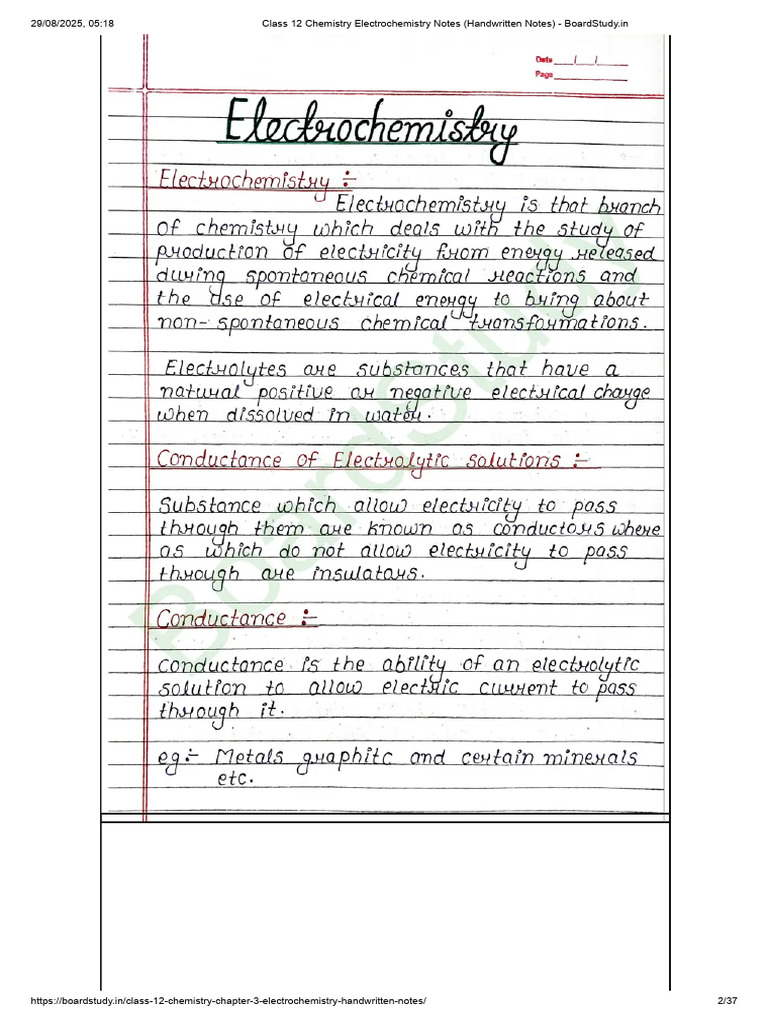 29/08/2025, 05:18 Class 12 Chemistry Electrochemistry Notes (Handwritten Notes) - BoardStudy.in
Date __/__/__
Page ________
Electrochemistry
Electrochemistry :-
Electrochemistry is that branch
of chemistry which deals with the study of
production of electricity from energy released
during spontaneous chemical reactions and
the use of electrical energy to bring about
non-spontaneous chemical transformations.
Electrolytes are substances that have a
natural positive or negative electrical charge
when dissolved in water.
Conductance of Electrolytic solutions :-
Substance which allow electricity to pass
through them are known as conductors where
as which do not allow electricity to pass
through are insulators.
Conductance :-
Conductance is the ability of an electrolytic
solution to allow electric current to pass
through it.
eg:- Metals graphite and certain minerals
etc.
BoardStudy
https://boardstudy.in/class-12-chemistry-chapter-3-electrochemistry-handwritten-notes/ 2/37